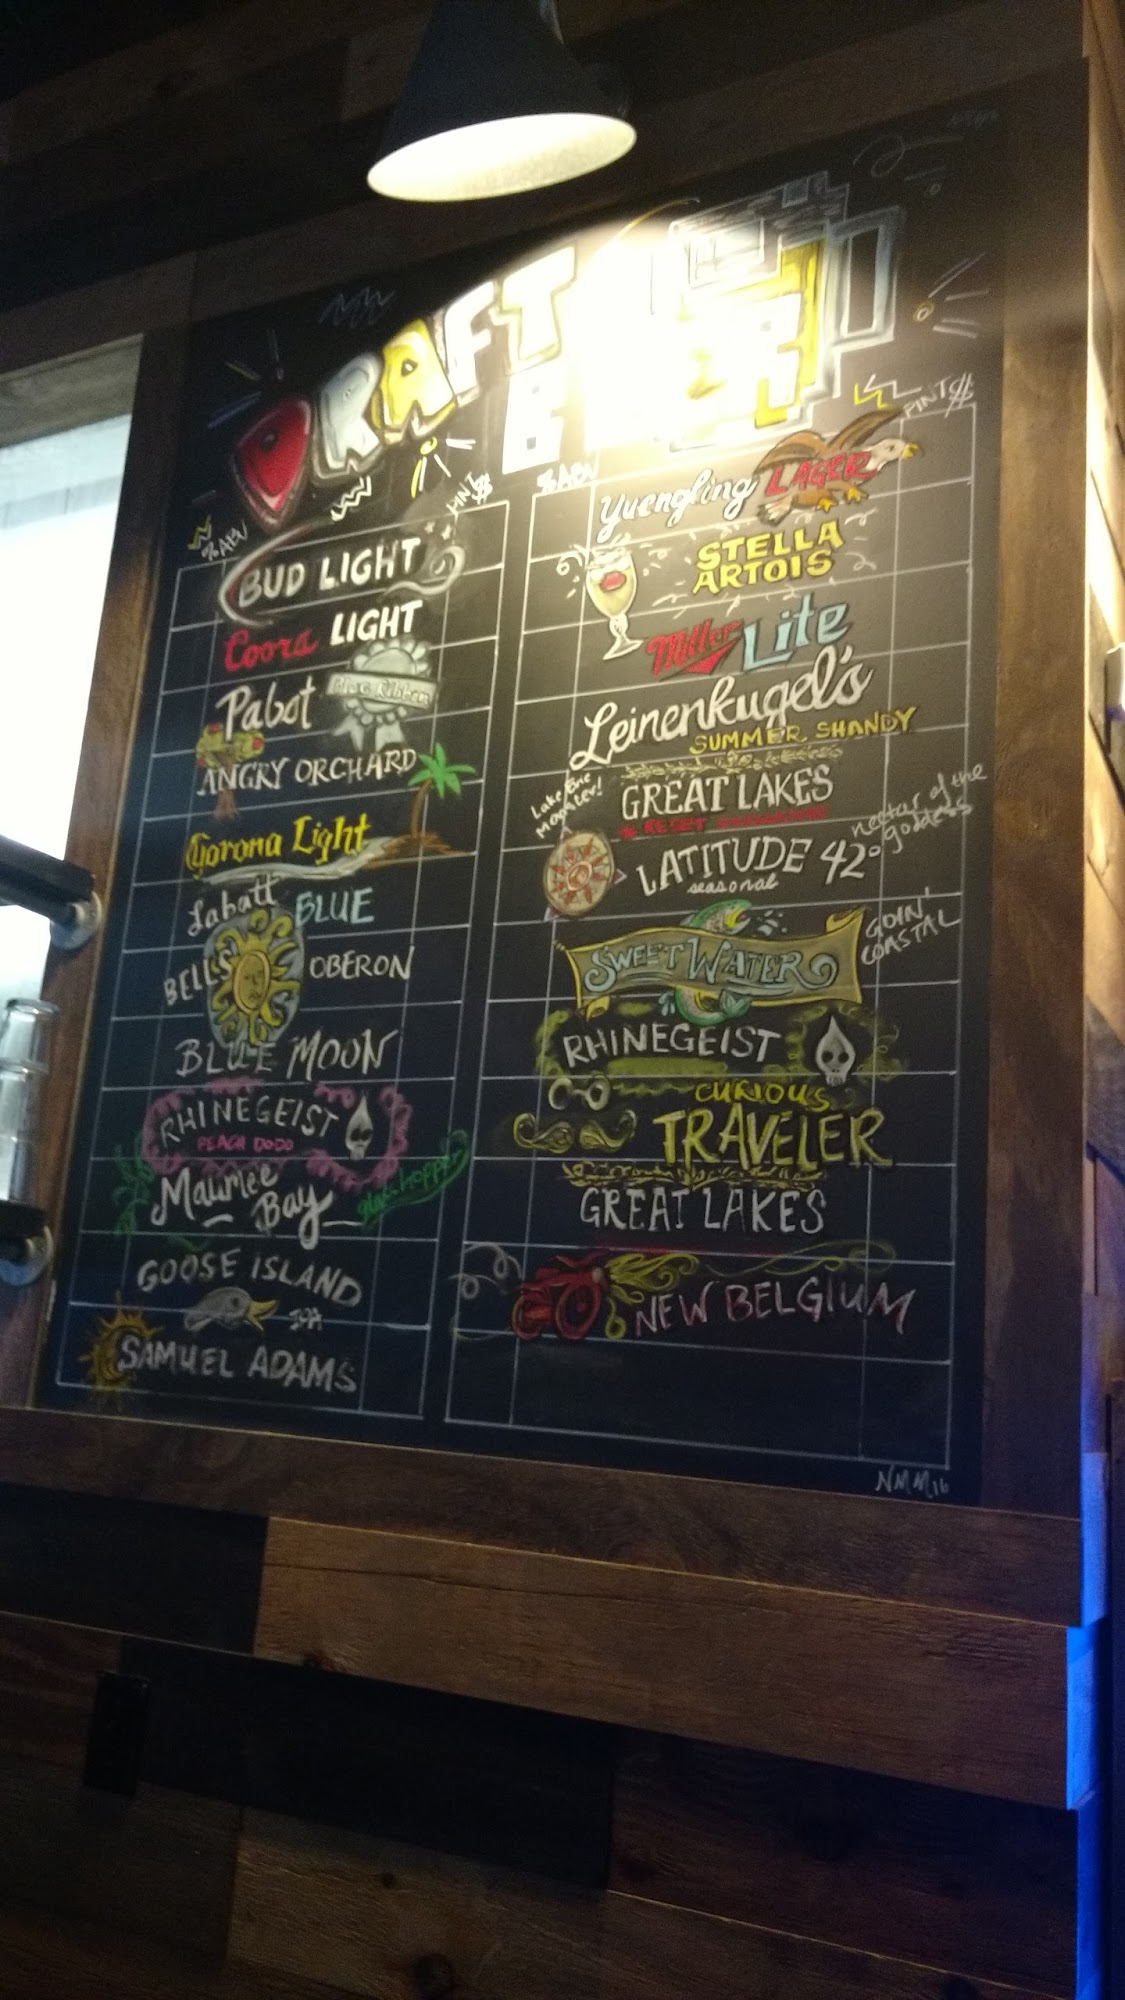 DRAFT
BEER
% ABV
PINT $$
BUD LIGHT
Coors LIGHT
Pabst Blue Ribbon
ANGRY ORCHARD
Corona Light
Labatt BLUE
BELL'S OBERON
BLUE MOON
RHINEGEIST
PEACH DODO
Maumee Bay
glass hopper
GOOSE ISLAND
IPA
SAMUEL ADAMS
% ABV
PINT $$
Yuengling LAGER
STELLA
ARTOIS
Miller Lite
Leinenkugel's
SUMMER SHANDY
Lake Erie
Monster!
GREAT LAKES
LATITUDE 42°
seasonal
nectar of the
goddess
SWEET WATER
GOIN'
COASTAL
RHINEGEIST
CURIOUS
TRAVELER
GREAT LAKES
NEW BELGIUM
NMM16